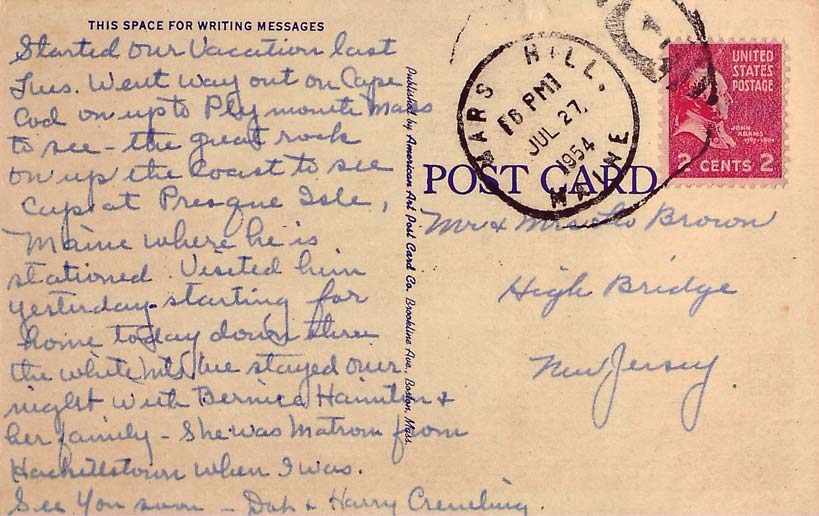 THIS SPACE FOR WRITING MESSAGES
Started our Vacation last
Tues. Went way out on Cape
Cod on up to Plymouth Mass
to see - the great rock
on up the Coast to see
at Presque Isle,
Maine where he is
stationed. Visited him
yesterday - starting for
home today down thru
the white Mts, we stayed over
night with Bernice &
her family - She was Matron from
Hackettstown when I was.
See You soon - & Harry
Published by American Art Post Card Co., Brookline Ave., Boston, Mass.
MARS HILL,
6 PM
JUL 27,
1954
MAINE
UNITED
STATES
POSTAGE
JOHN
ADAMS
1797-1801
2 CENTS 2
POST CARD
Mr & Mrs Brown
High Bridge
New Jersey.